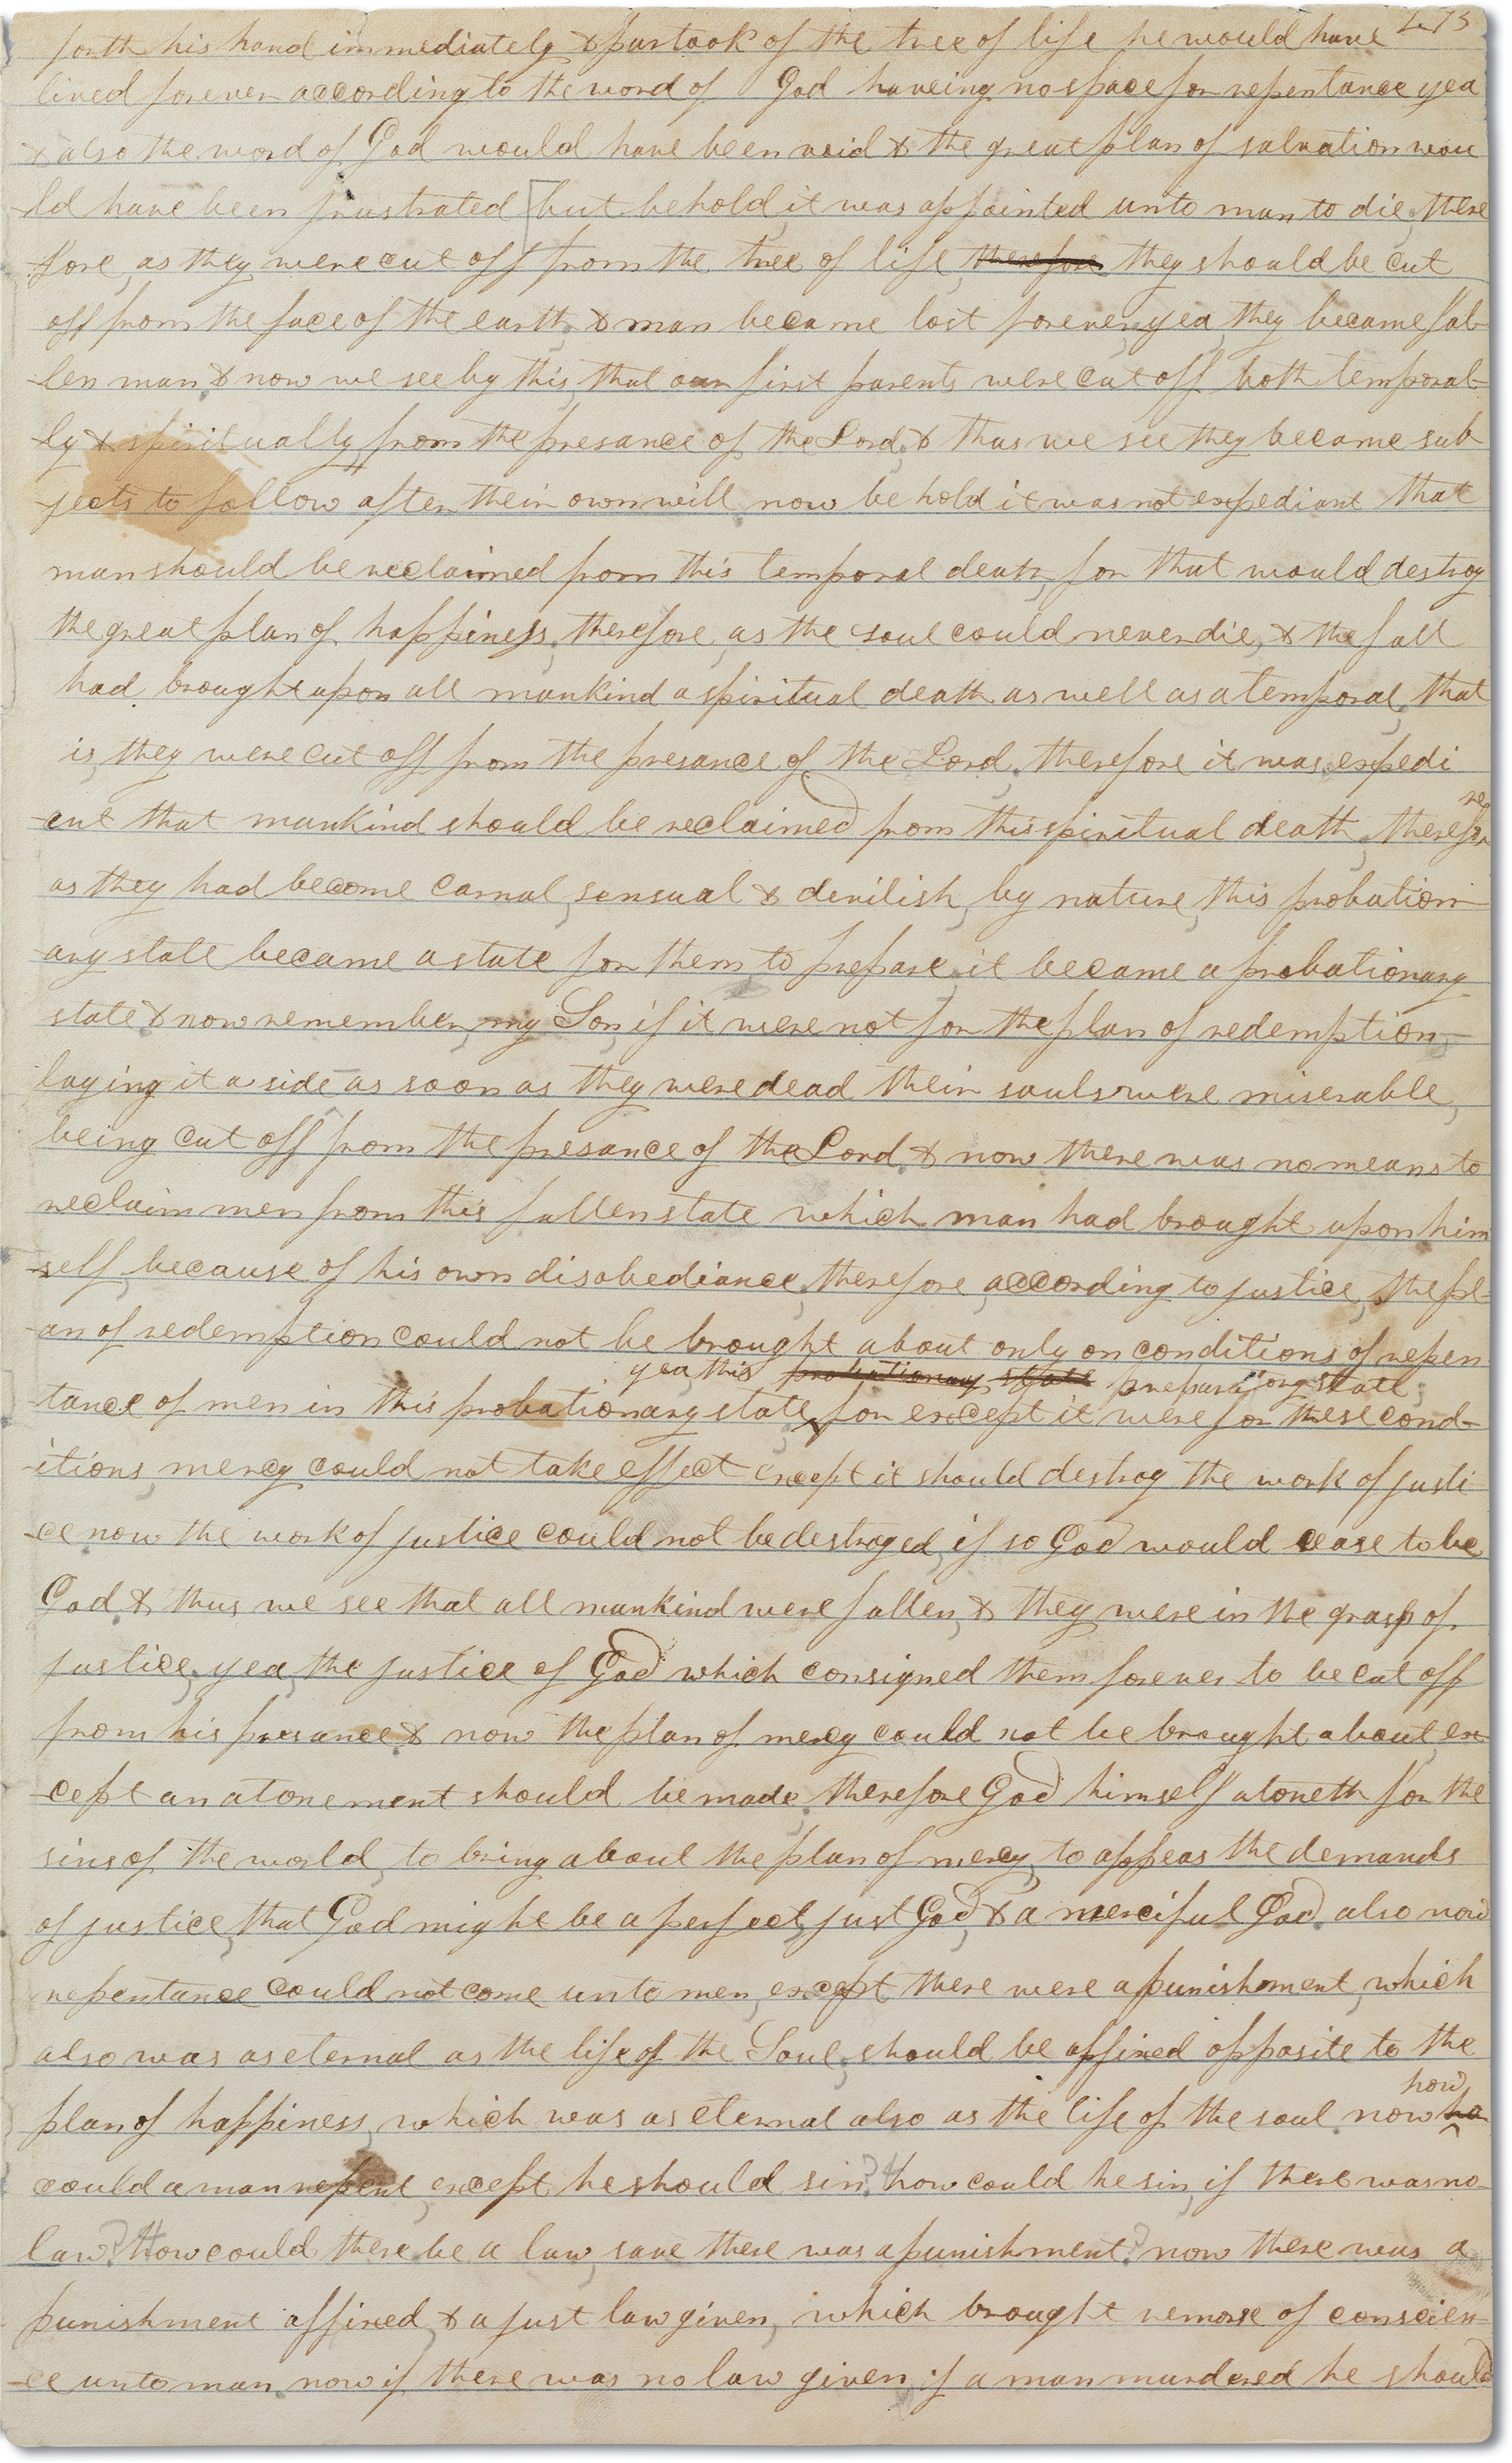 273
forth his hand immediately & partook of the tree of life he would have
lived forever according to the word of God haveing no space for repentance yea
& also the word of God would have been void & the great plan of salvation wou
ld have been frustrated but behold it was appointed unto man to die, there
fore, as they were cut off from the tree of life therefore they should be cut
off from the face of the earth, & man became lost forever, yea, they became fal-
len man & now we see by this, that our first parents were cut off both temporal-
ly & spiritually from the presance of the Lord, & thus we see they became sub-
-jects to follow after their own will now behold it was not expediant that
man should be reclaimed from this temporal death, for that would destroy
the great plan of happiness, therefore, as the soul could never die, & the fall
had brought upon all mankind a spiritual death as well as a temporal, that
is, they were cut off from the presance of the Lord, therefore it was expedi
-ent that mankind should be reclaimed from this spiritual death, therefore
as they had become carnal, sensual & devilish, by nature, this probation-
-ary state became a state for them to prepare, it became a probationary
state & now remember, my Son, if it were not for the plan of redemption,
laying it aside as soon as they were dead their souls were miserable,
being cut off from the presance of the Lord & now there was no means to
reclaim men from this fallen state which man had brought upon him
-self, because of his own disobediance, therefore, according to justice, the pl-
-an of redemption could not be brought about only on conditions of repen
yea, this probationary state preparatory state;
tance of men in this probationary state, for except it were for these cond-
-itions, mercy could not take effect except it should destroy the work of justi
-ce now the work of justice could not be destroyed, if so God would cease to be
God & thus we see that all mankind were fallen, & they were in the grasp of
justice, yea, the justice of God which consigned them forever to be cut off
from his presance & now the plan of mercy could not be brought about ex
-cept an atonement should be made, therefore God himself atoneth for the
sins of the world, to bring about the plan of mercy, to appeas the demands
of justice, that God might be a perfect, just God, & a merciful God also now
repentance could not come unto men, except there were a punishment, which
also was as eternal as the life of the Soul, should be affixed opposite to the
how
plan of happiness, which was as eternal also as the life of the soul now ho
could a man repent, except he should sin? how could he sin, if there was no
law? How could there be a law, save there was a punishment? now there was a
punishment affixed, & a just law given, which brought remorse of conscien-
-ce unto man now if there was no law given, if a man murdered he should